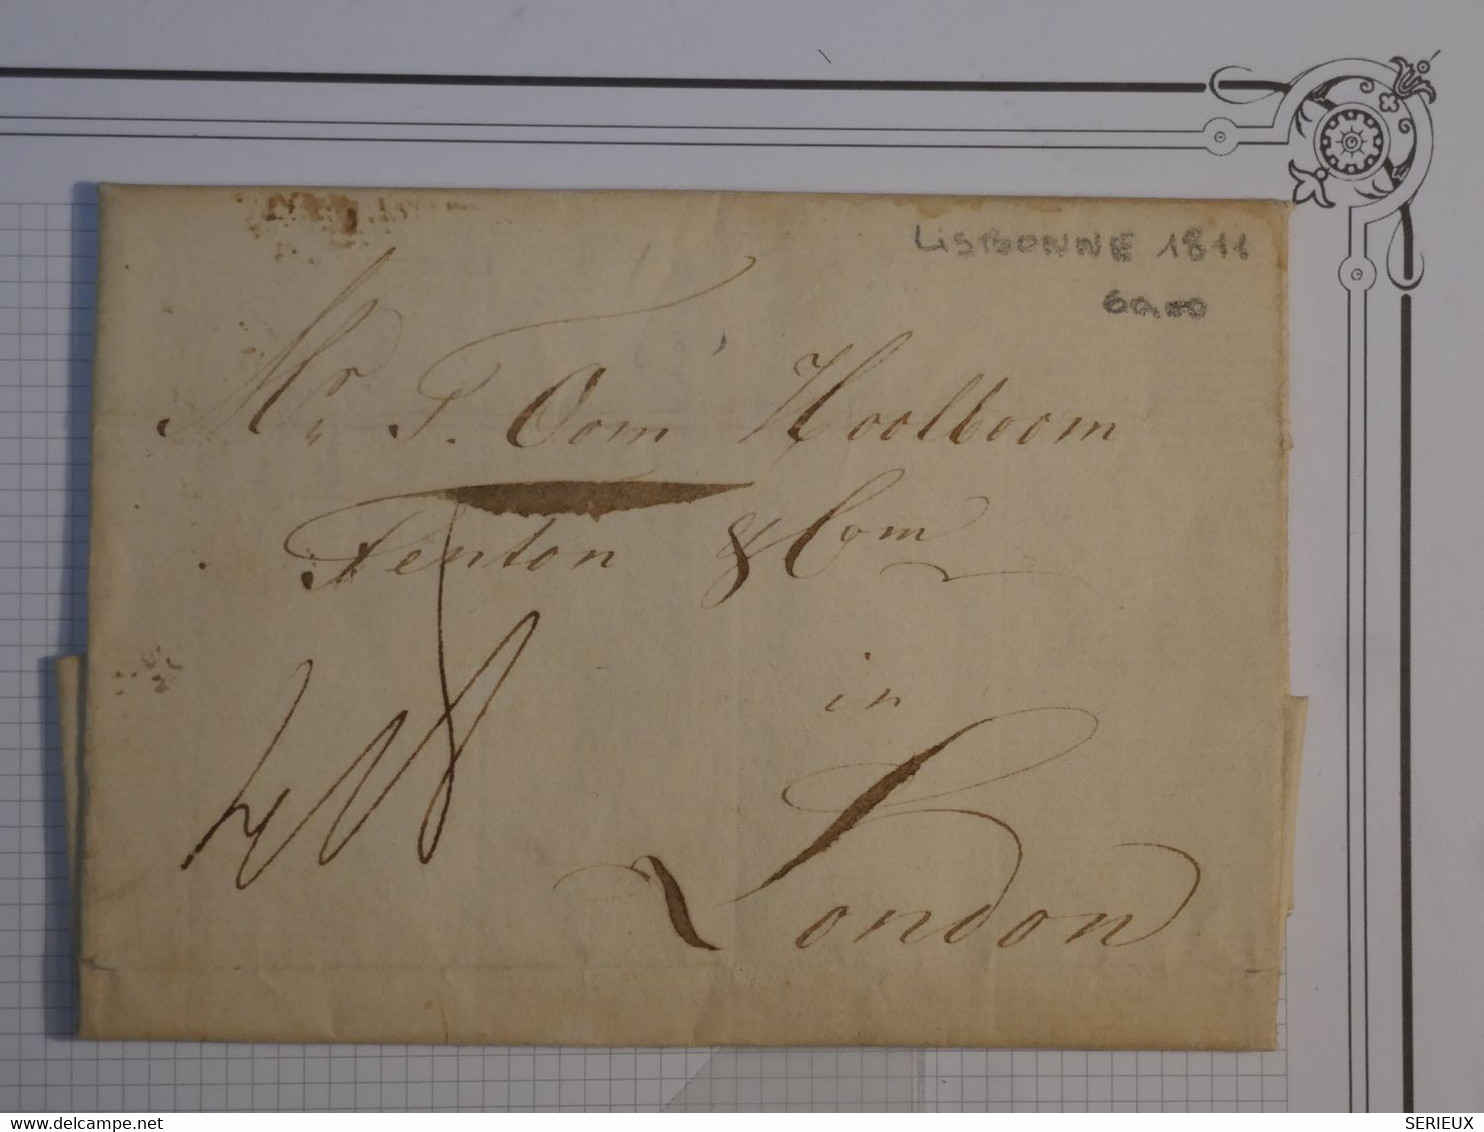 LISBONNE 1811
60,00
Mr. T. Oom Hoolboom
Fenton & Com
in
London
delcampe.net
SERIEUX